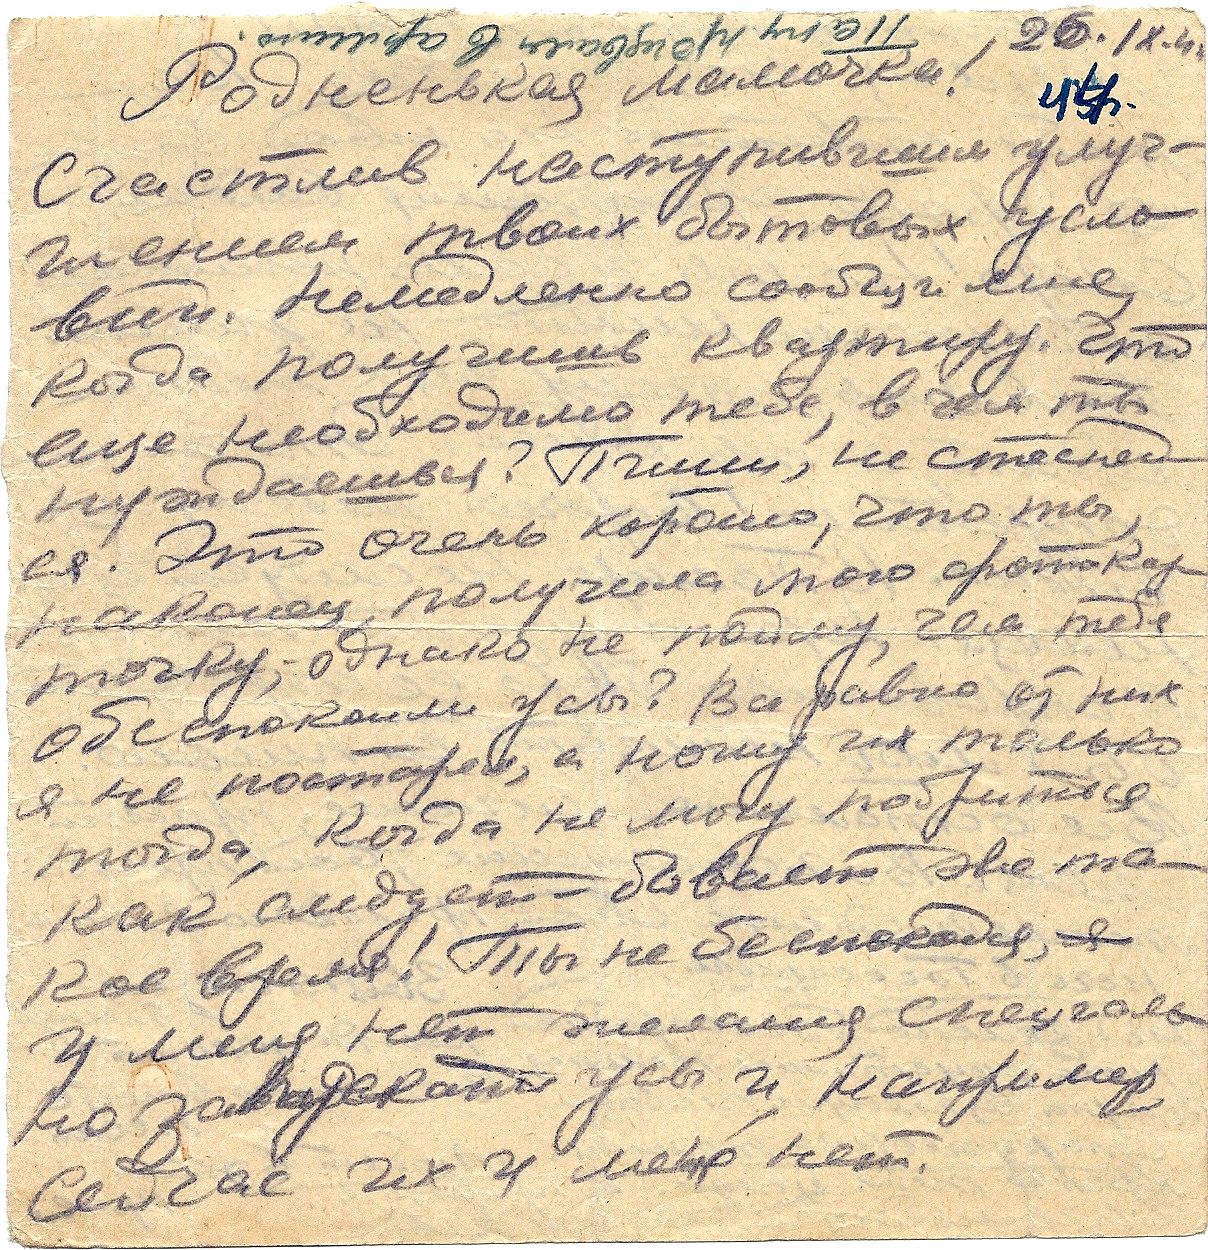 Папу призвали в армию.
26.IX.4
44г.
Родненькая мамочка!
Счастлив наступившим улуч-
шением твоих бытовых усло-
вий. Немедленно сообщи мне,
когда получишь квартиру. Что
еще необходимо тебе, в чем ты
нуждаешься? Пиши, не стесняй-
ся. Это очень хорошо, что ты,
наконец, получила мою фотокар-
точку, однако не пойму, чем тебя
обеспокоили усы? Все равно от них
я не постарел, а ношу их только
тогда, когда не могу побриться
как следует – бывает же та-
кое время! Ты не беспокойся, я
у меня нет желания специаль-
но заводить усы и например
сейчас их у меня нет.